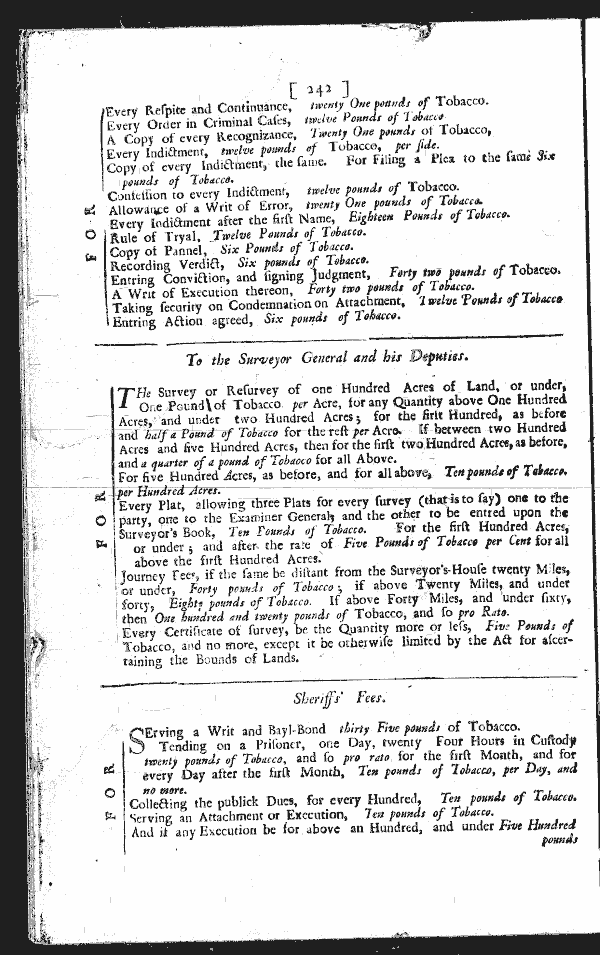 [ 242 ]
Every Reſpite and Continuance, twenty One pounds of Tobacco.
Every Order in Criminal Caſes, twelve Pounds of Tobacco
A Copy of every Recognizance, Twenty One pounds of Tobacco,
Every Indictment, twelve pounds of Tobacco, per ſide.
Copy of every Indictment, the ſame. For Filing a Plea to the ſame Six
pounds of Tobacco.
Confeſſion to every Indictment, twelve pounds of Tobacco.
Allowance of a Writ of Error, twenty One pounds of Tobacco.
Every Indictment after the firſt Name, Eighteen Pounds of Tobacco.
Rule of Tryal, Twelve Pounds of Tobacco.
Copy of Pannel, Six Pounds of Tobacco.
Recording Verdict, Six pounds of Tobacco.
Entring Conviction, and ſigning Judgment, Forty two pounds of Tobacco.
A Writ of Execution thereon, Forty two pounds of Tobacco.
Taking ſecurity on Condemnation on Attachment, Twelve Pounds of Tobacco
Entring Action agreed, Six pounds of Tobacco.
FOR
To the Surveyor General and his Deputies.
THe Survey or Reſurvey of one Hundred Acres of Land, or under,
One Pound of Tobacco per Acre, for any Quantity above One Hundred
Acres, and under two Hundred Acres; for the firſt Hundred, as before
and half a Pound of Tobacco for the reſt per Acre. If between two Hundred
Acres and five Hundred Acres, then for the firſt two Hundred Acres, as before,
and a quarter of a pound of Tobacco for all Above.
For five Hundred Acres, as before, and for all above, Ten pounds of Tobacco.
per Hundred Acres.
Every Plat, allowing three Plats for every ſurvey (that is to ſay) one to the
party, one to the Examiner General, and the other to be entred upon the
Surveyor's Book, Ten Pounds of Tobacco. For the firſt Hundred Acres,
or under; and after the rate of Five Pounds of Tobacco per Cent for all
above the firſt Hundred Acres.
Journey Fees, if the ſame be diſtant from the Surveyor's-Houſe twenty Miles,
or under, Forty pounds of Tobacco; if above Twenty Miles, and under
forty, Eighty pounds of Tobacco. If above Forty Miles, and under ſixty,
then One hundred and twenty pounds of Tobacco, and ſo pro Rato.
Every Certificate of ſurvey, be the Quantity more or leſs, Five Pounds of
Tobacco, and no more, except it be otherwiſe limited by the Act for aſcer-
taining the Bounds of Lands.
FOR
Sheriffs Fees.
SErving a Writ and Bayl-Bond thirty Five pounds of Tobacco.
Tending on a Priſoner, one Day, twenty Four Hours in Cuſtody
twenty pounds of Tobacco, and ſo pro rato for the firſt Month, and for
every Day after the firſt Month, Ten pounds of Tobacco, per Day, and
no more.
Collecting the publick Dues, for every Hundred, Ten pounds of Tobacco.
Serving an Attachment or Execution, Ten pounds of Tobacco.
And if any Execution be for above an Hundred, and under Five Hundred
pounds
FOR